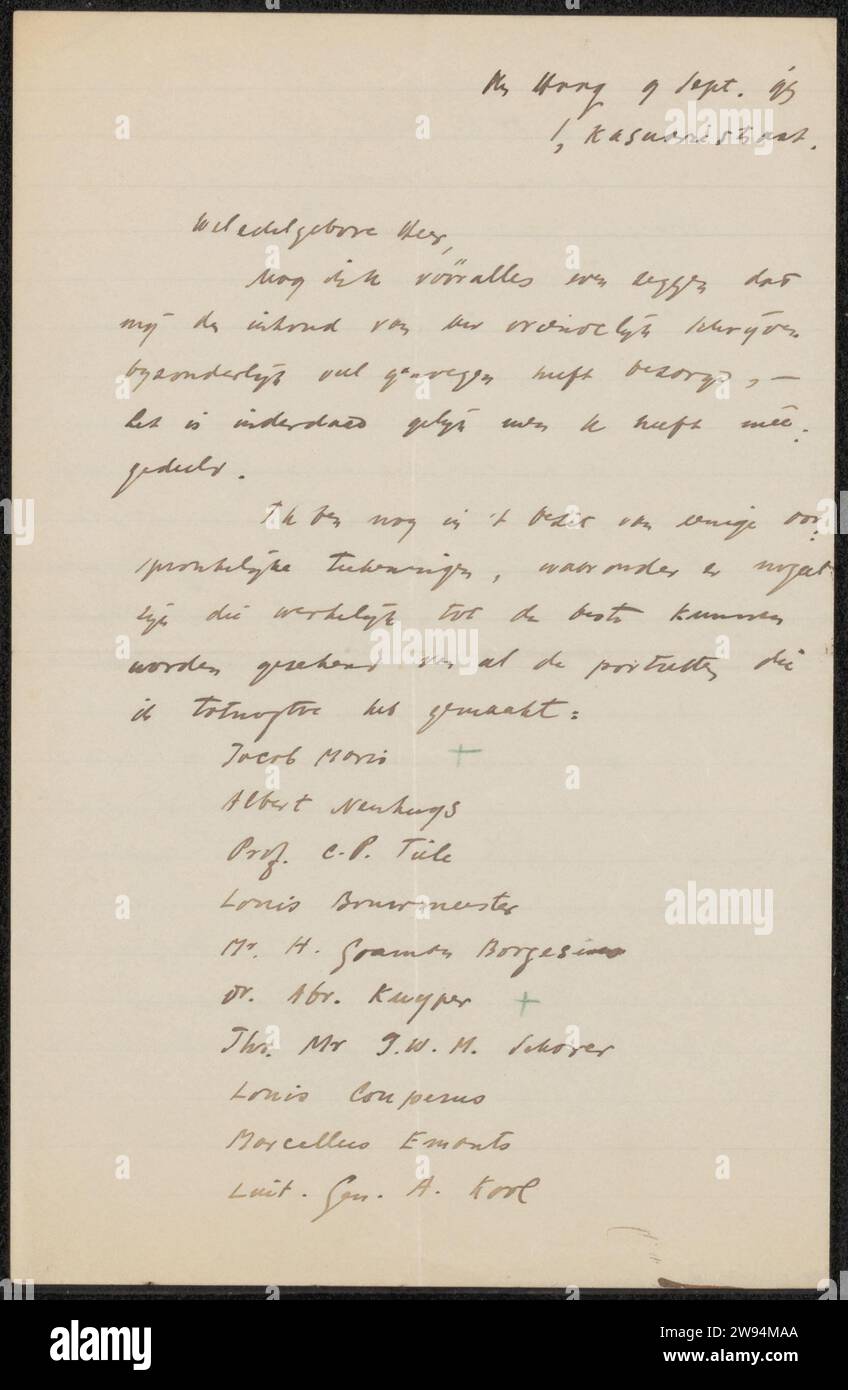 Den Haag 9 Sept.
1, Kasuariestraat.
Weledelgebore Heer,
Mag ik vóóralles even zeggen dat
mij de inhoud van Uw vriendelijk schrijven
byzonderlijk veel genoegen heeft bezorgd, –
het is inderdaad gelijk men U heeft mee-
gedeeld.
Ik ben nog in 't bezit van eenige oor-
spronkelijke teekeningen, waaronder er nogal
zijn die werkelijk tot de beste kunnen
worden gerekend van al de portretten die
ik totnogtoe heb gemaakt:
Jacob Maris +
Albert Neuhuys
Prof. C.P. Tiele
Louis Bouwmeester
Mr. H. Goeman Borgesius
Dr. Abr. Kuyper +
Jhr. Mr J.W.M. Schorer
Louis Couperus
Marcellus Emants
Luit. Gen. A. Kool
alamy
alamy
Image ID: 2W94MAA
www.alamy.com